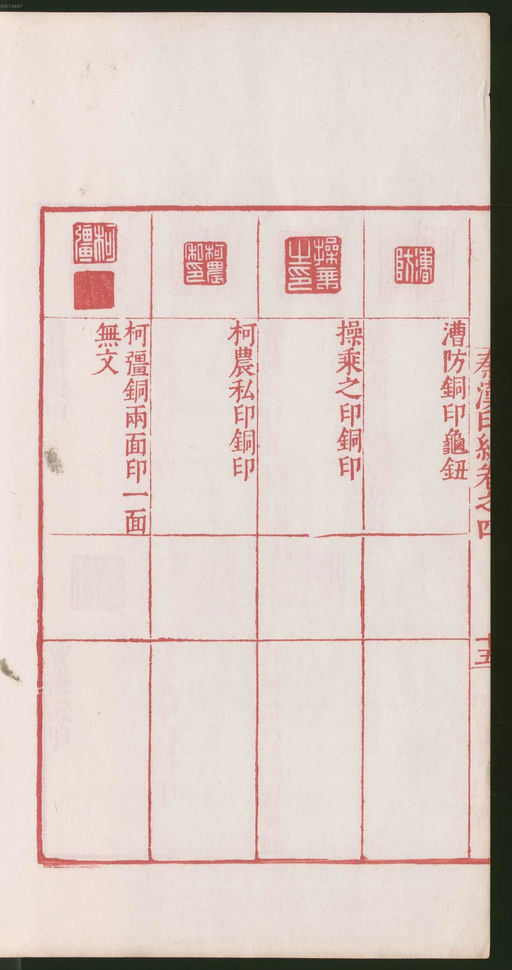 秦漢印統卷之四
十五
漕防
漕防銅印龜鈕
操乘之印
操乘之印銅印
柯農私印
柯農私印銅印
柯彊
柯彊銅兩面印一面
無文
00073447